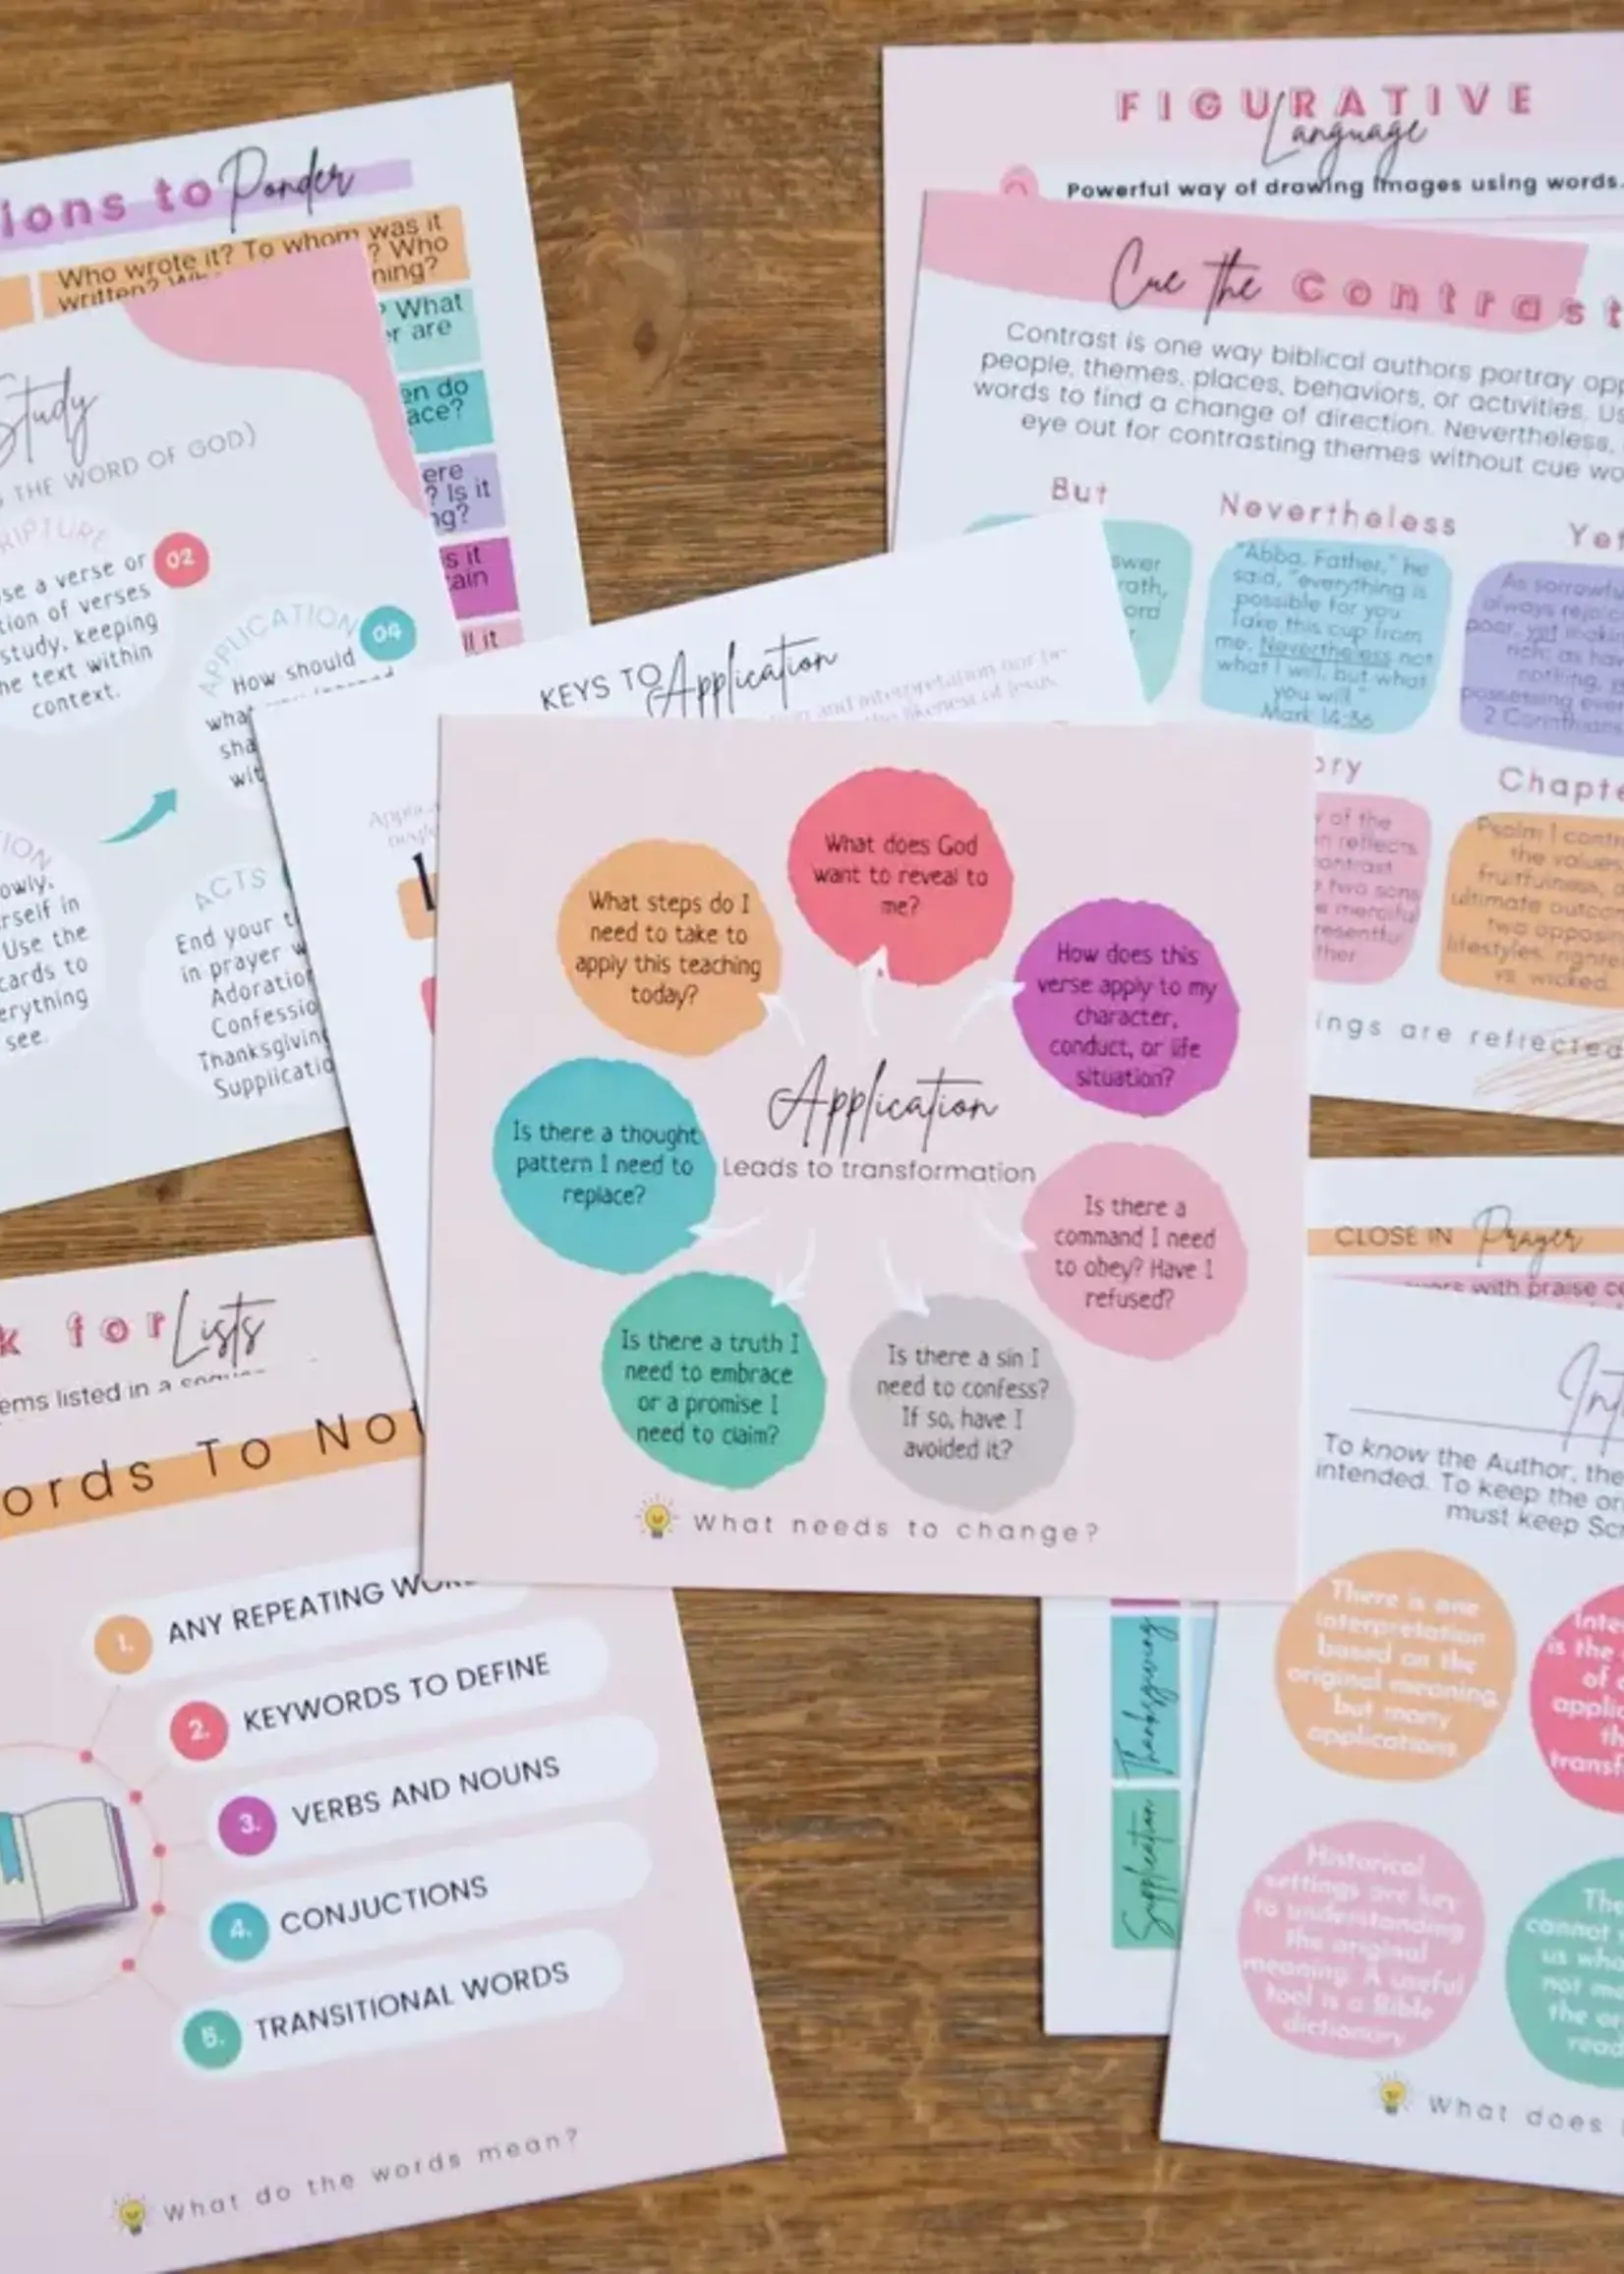 ions to Ponder
Who wrote it? To whom was it
written?
? Who
ning?
? What
r are
en do
ace?
ere
? Is it
ng?
s it
tain
ll it
Study
THE WORD OF GOD)
RIPTURE
02
se a verse or
tion of verses
study, keeping
he text within
context.
APPLICATION
04
How should
what
sha
wit
ION
owly,
rself in
Use the
cards to
erything
see.
ACTS
End your t
in prayer w
Adoration
Confessio
Thanksgiving
Supplicatio
FIGURATIVE
Language
Powerful way of drawing images using words.
Cue the Contrast
Contrast is one way biblical authors portray opp
people, themes, places, behaviors, or activities. Us
words to find a change of direction. Nevertheless,
eye out for contrasting themes without cue wo
But
swer
rath,
ord
Nevertheless
"Abba, Father," he
said, "everything is
possible for you.
Take this cup from
me. Nevertheless not
what I will, but what
you will."
Mark 14:36
Yet
As sorrowfu
always rejoic
poor, yet makin
rich; as hav
nothing, ye
possessing ever
2 Corinthians
ory
y of the
n reflects
contrast
two sons
e merciful
resentful
ther
Chapte
Psalm 1 contr
the values,
fruitfulness, a
ultimate outco
two opposin
lifestyles, righte
vs. wicked.
ings are reflected
KEYS TO Application
and interpretation
the likeness of Jesus
What does God
want to reveal to
me?
What steps do I
need to take to
apply this teaching
today?
How does this
verse apply to my
character,
conduct, or life
situation?
Application
Leads to transformation
Is there a thought
pattern I need to
replace?
Is there a
command I need
to obey? Have I
refused?
Is there a truth I
need to embrace
or a promise I
need to claim?
Is there a sin I
need to confess?
If so, have I
avoided it?
What needs to change?
k for Lists
ems listed in a
ords To Not
1. ANY REPEATING WOR
2. KEYWORDS TO DEFINE
3. VERBS AND NOUNS
4. CONJUCTIONS
5. TRANSITIONAL WORDS
What do the words mean?
CLOSE IN Prayer
with praise
Thanksgiving
Supplication
Int
To know the Author, the
intended. To keep the or
must keep Scr
There is one
interpretation
based on the
original meaning,
but many
applications
Inte
is the
of
applic
th
transf
Historical
settings are key
to understanding
the original
meaning. A useful
tool is a Bible
dictionary
The
cannot
us wha
not me
the or
read
What does